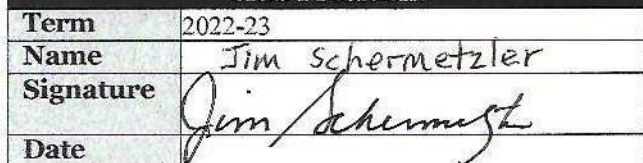 Term 2022-23
Name Jim Schermetzler
Signature Jim Schermetzler
Date